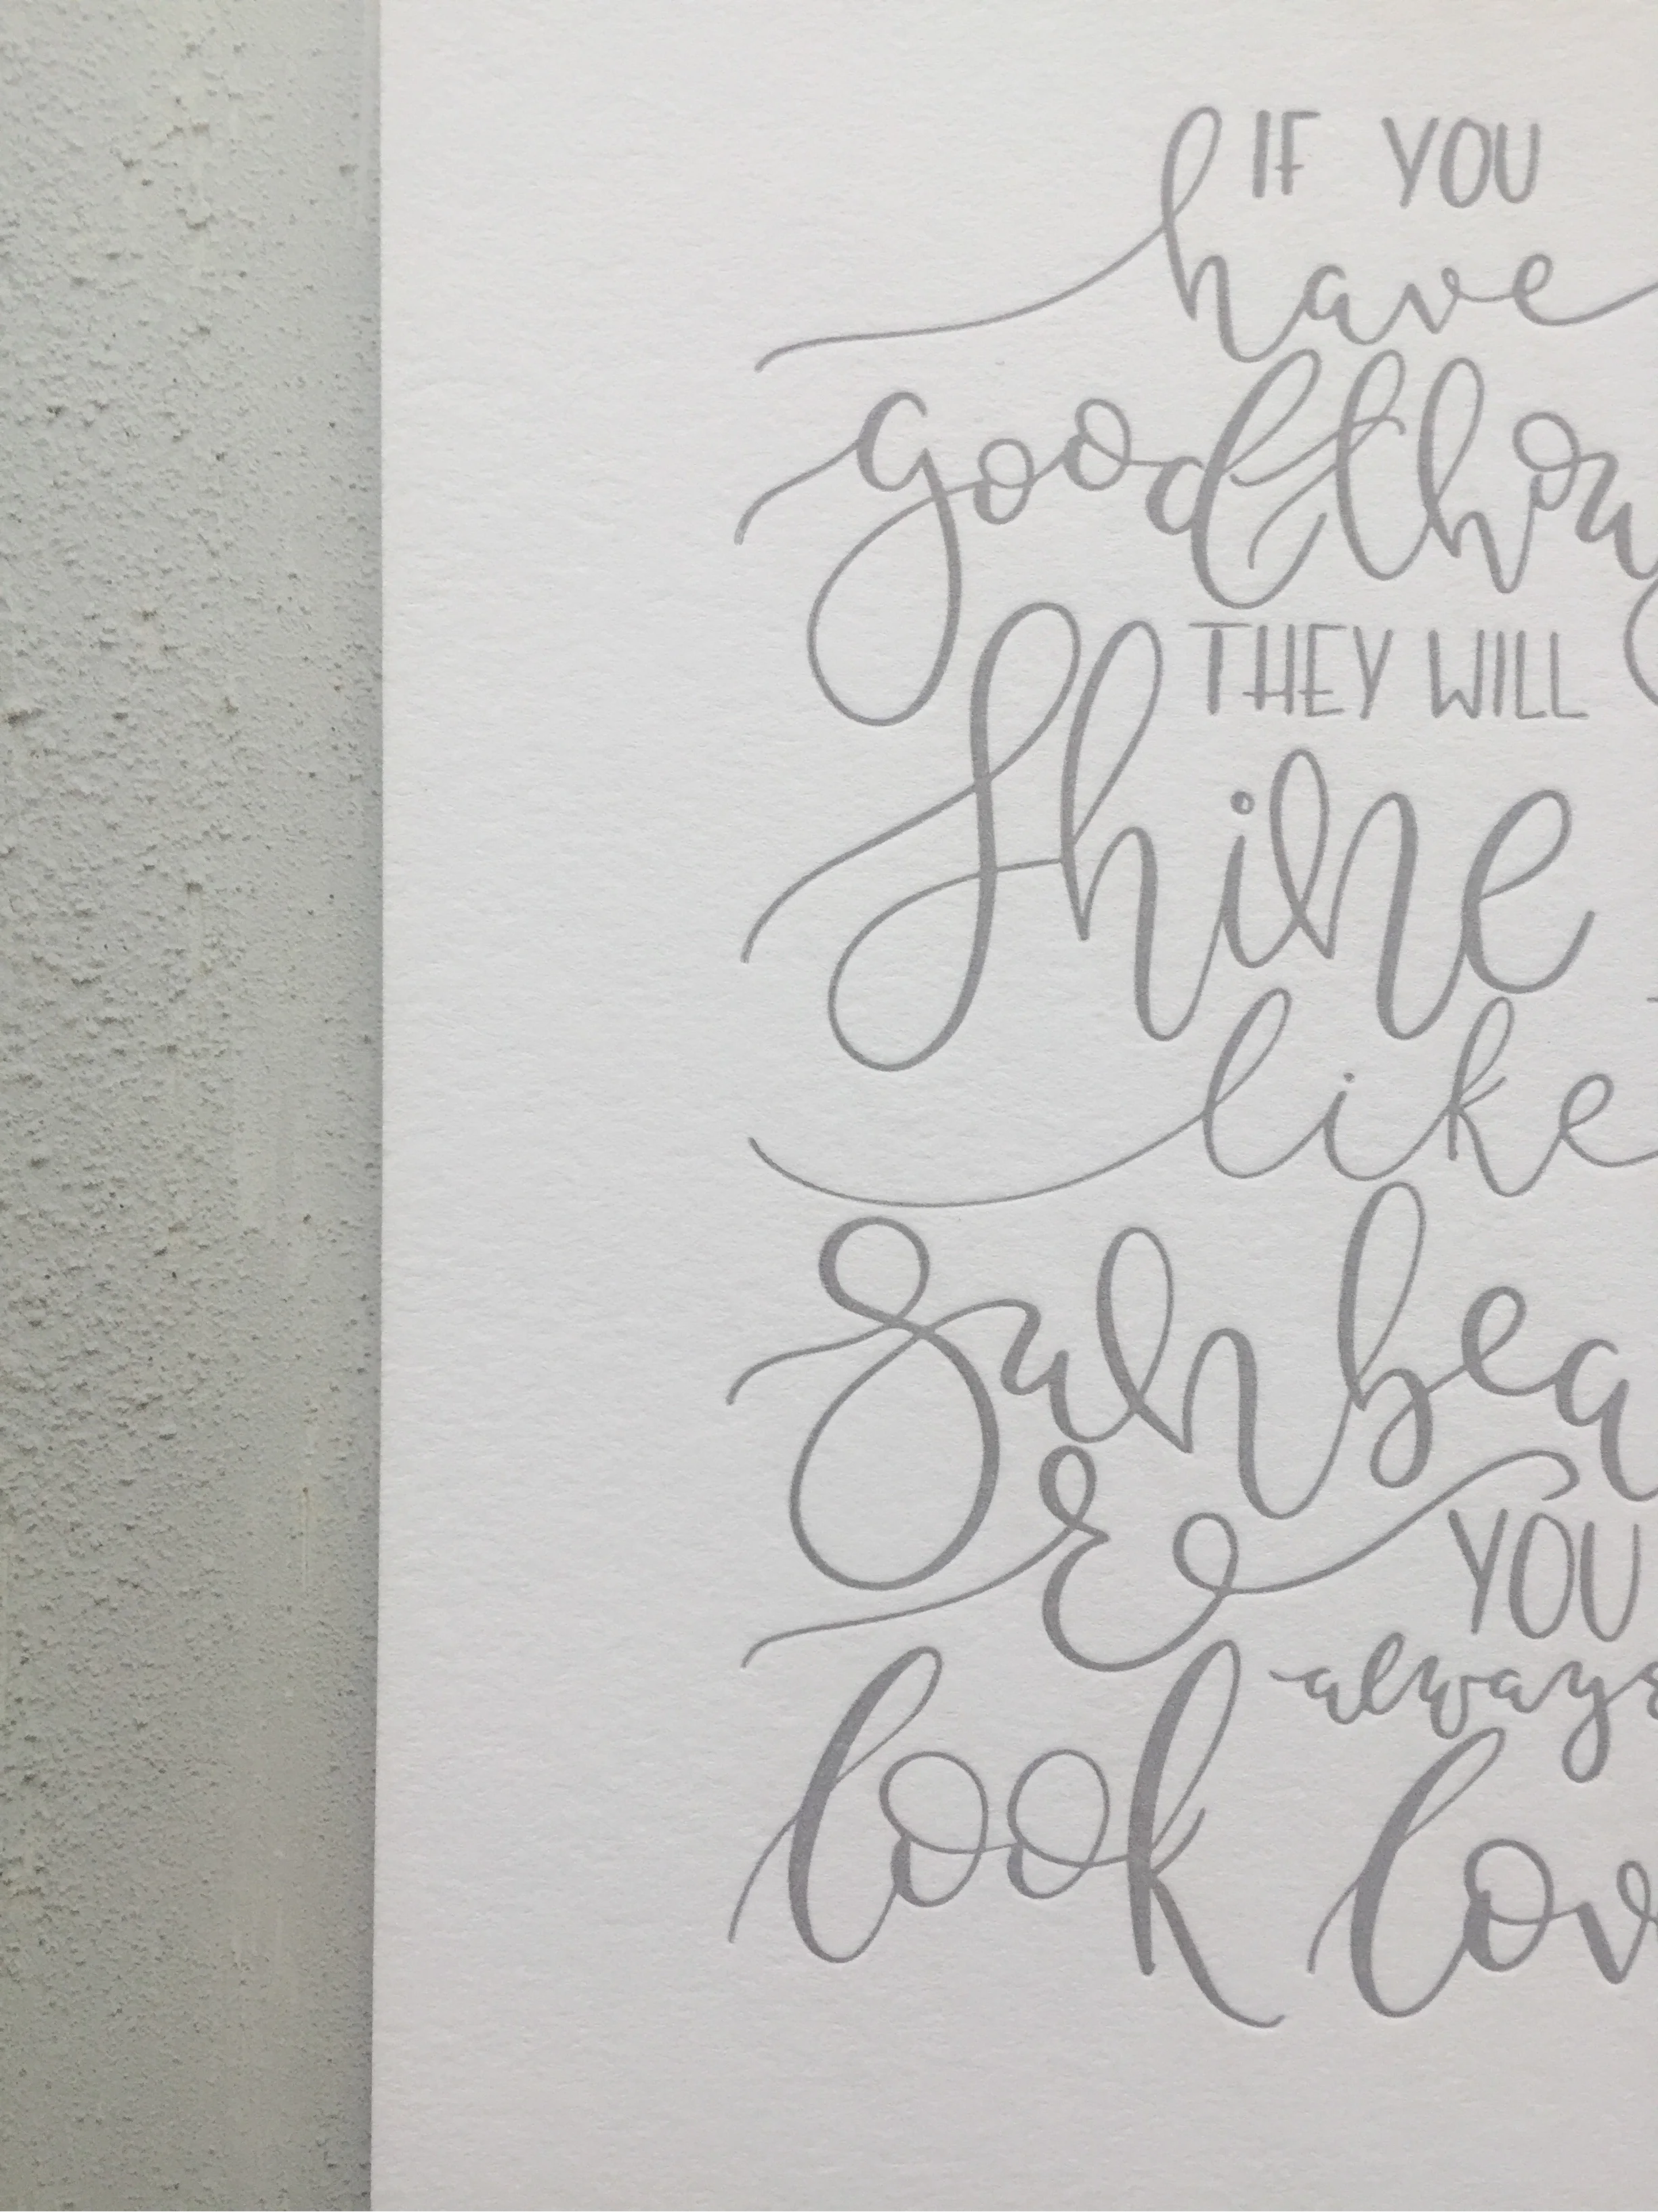 IF YOU
have
good thoug
THEY WILL
Shine
like
Sunbea
& YOU
always
look lov